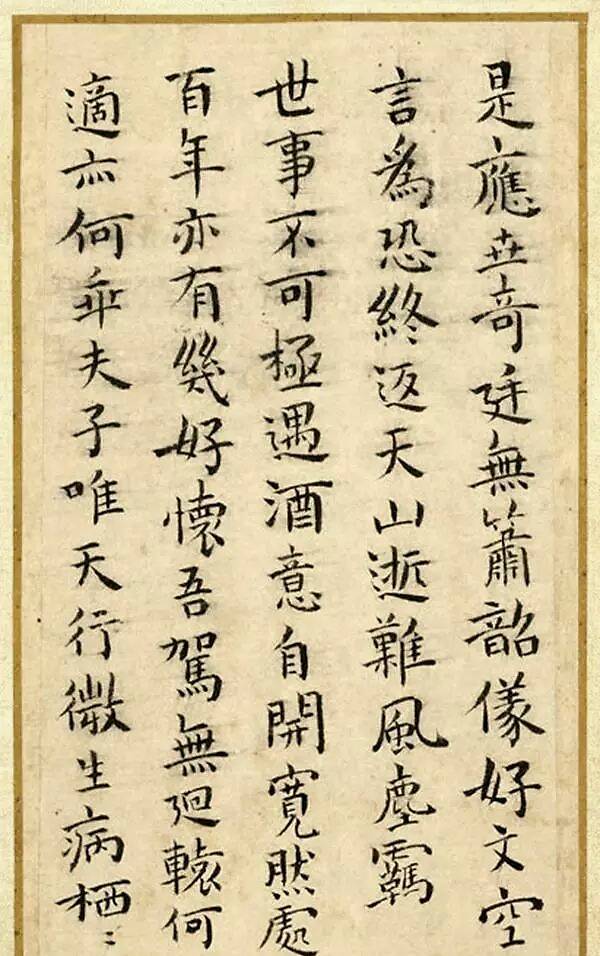 是應世奇廷無簫韶儀好文空
言為恐終返天山逝難風塵羈
世事不可極遇酒意自開寬然處
百年亦有幾好懷吾駕無迴轅何
適亦何乖夫子唯天行微生病栖〻